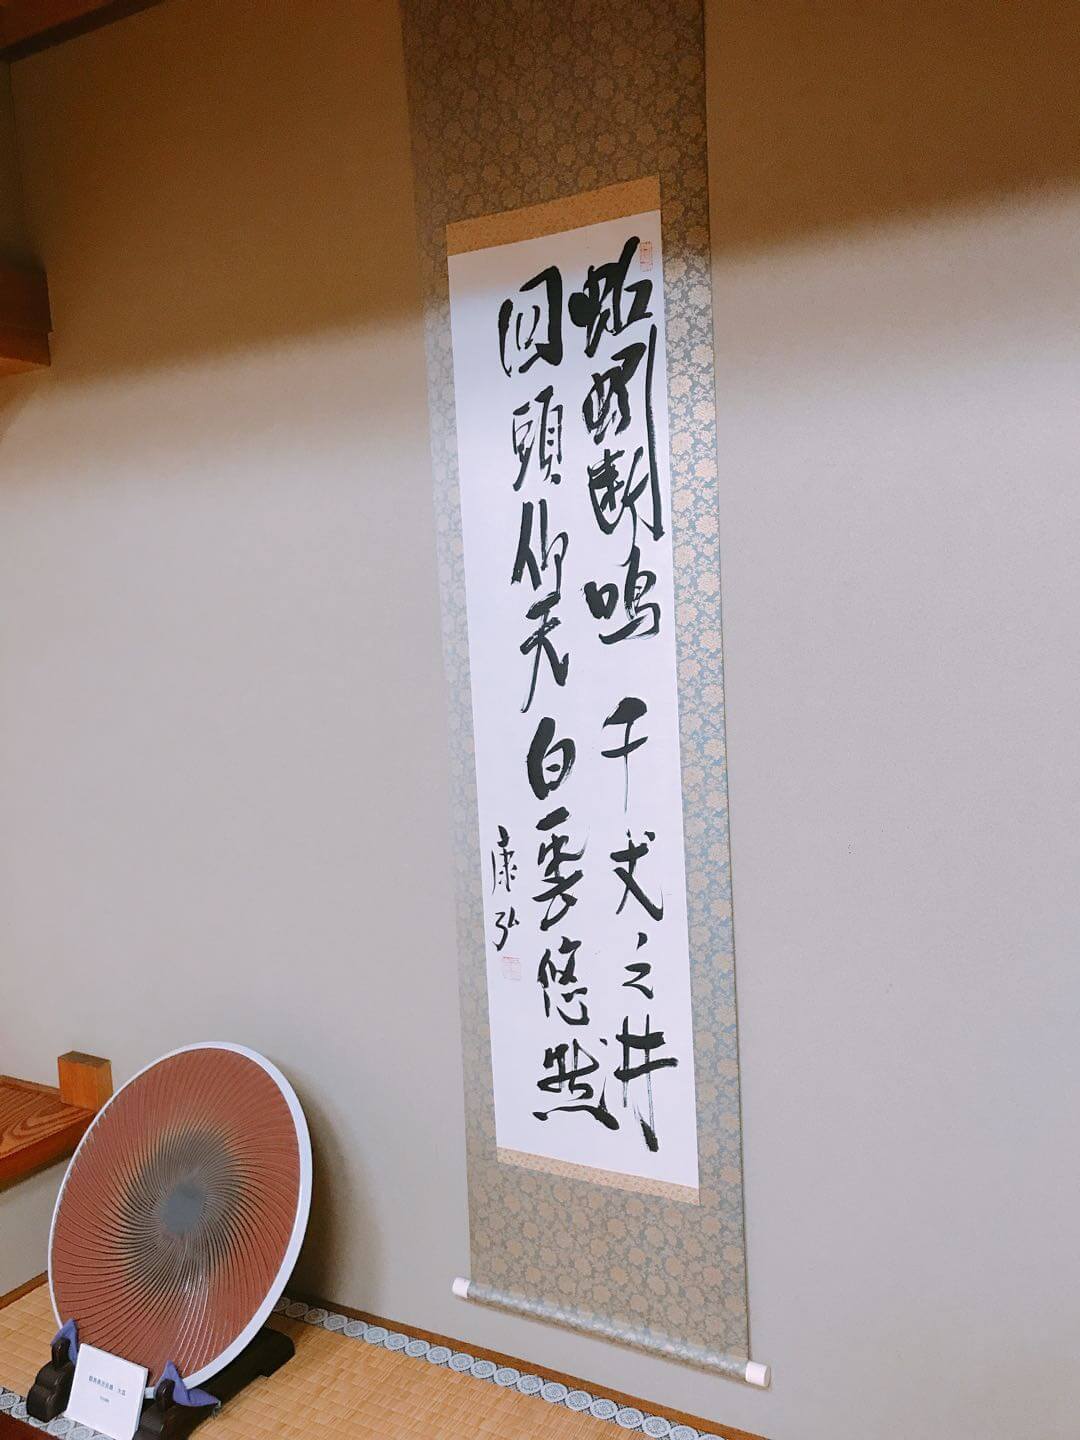 蛄蜩断鳴千丈之井
回頭仰天白雲悠然
康弘